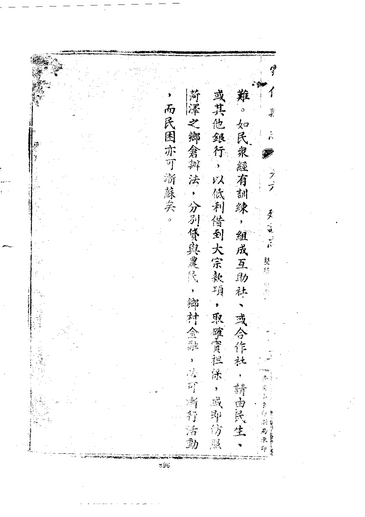 難。如民衆經有訓練，組成互助社、或合作社，請由民生、
或其他銀行，以低利借到大宗款項，取確實担保，或即仿照
荷澤之鄉倉辦法，分別貸與農民，鄉村金融，亦可漸行活動
，而民困亦可漸蘇矣。
596